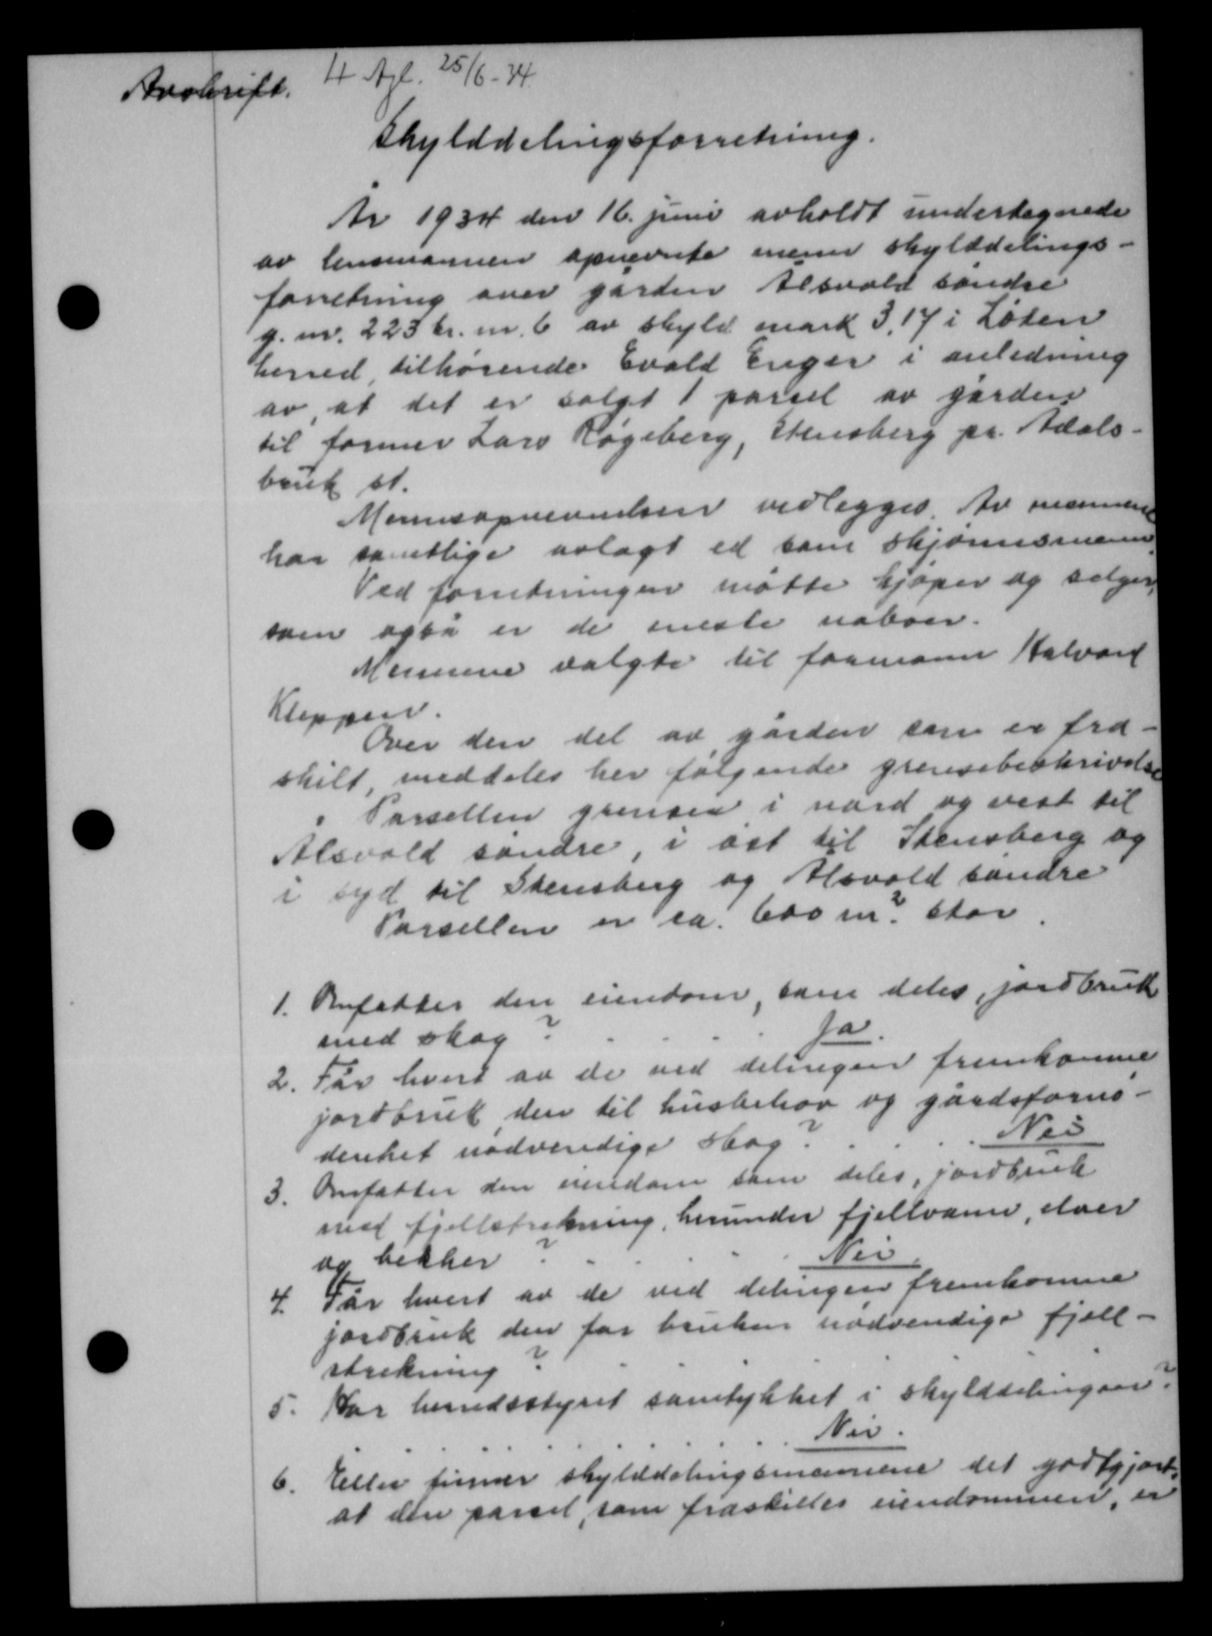 Avskrift. 4 Agl. 25/6-34.
Skylddelingsforretning.
År 1934 den 16. juni avholdt undertegnede
av lensmannen opnevnte menn skylddelings-
forretning over gården Alsvold søndre
g. nr. 223 br. nr. 6 av skyld mark 3,17 i Løten
herred, tilhørende Evald Enger i anledning
av, at det er solgt 1 parsel av gården
til former Lars Røgeberg, Stensberg pr. Ådals-
bruk st.
Mennsopnevnelsen vedlegges. Av mennene
har samtlige avlagt ed som skjønnsmenn.
Ved forretningen møtte kjøper og selger,
som også er de neste naboer.
Mennene valgte til formann Halvard
Kleppen.
Over den del av gården som er fra-
skilt, meddeles her følgende grensebeskrivelse
Parsellen grenser i nord og vest til
Alsvold søndre, i øst til Stensberg og
i syd til Stensberg og Alsvold søndre
Parsellen er ca. 600 m² stor.
1. Omfatter den eiendom, som deles, jordbruk
med skog? . . . . Ja.
2. Får hvert av de ved delingen fremkomne
jordbruk den til husbehov og gårdsfornø-
denhet nødvendige skog? . . . . Nei
3. Omfatter den eiendom som deles, jordbruk
med fjellstrekning, herunder fjellvann, elver
og bekker? . . . . Nei.
4. Får hvert av de ved delingen fremkomne
jordbruk den for bruken nødvendige fjell-
strekning? . . . .
5. Har herredsstyret samtykket i skylddelingen?
. . . . . Nei.
6. Eller finner skylddelingsmennene det godtgjort,
at den parsel, som fraskilles eiendommen, er